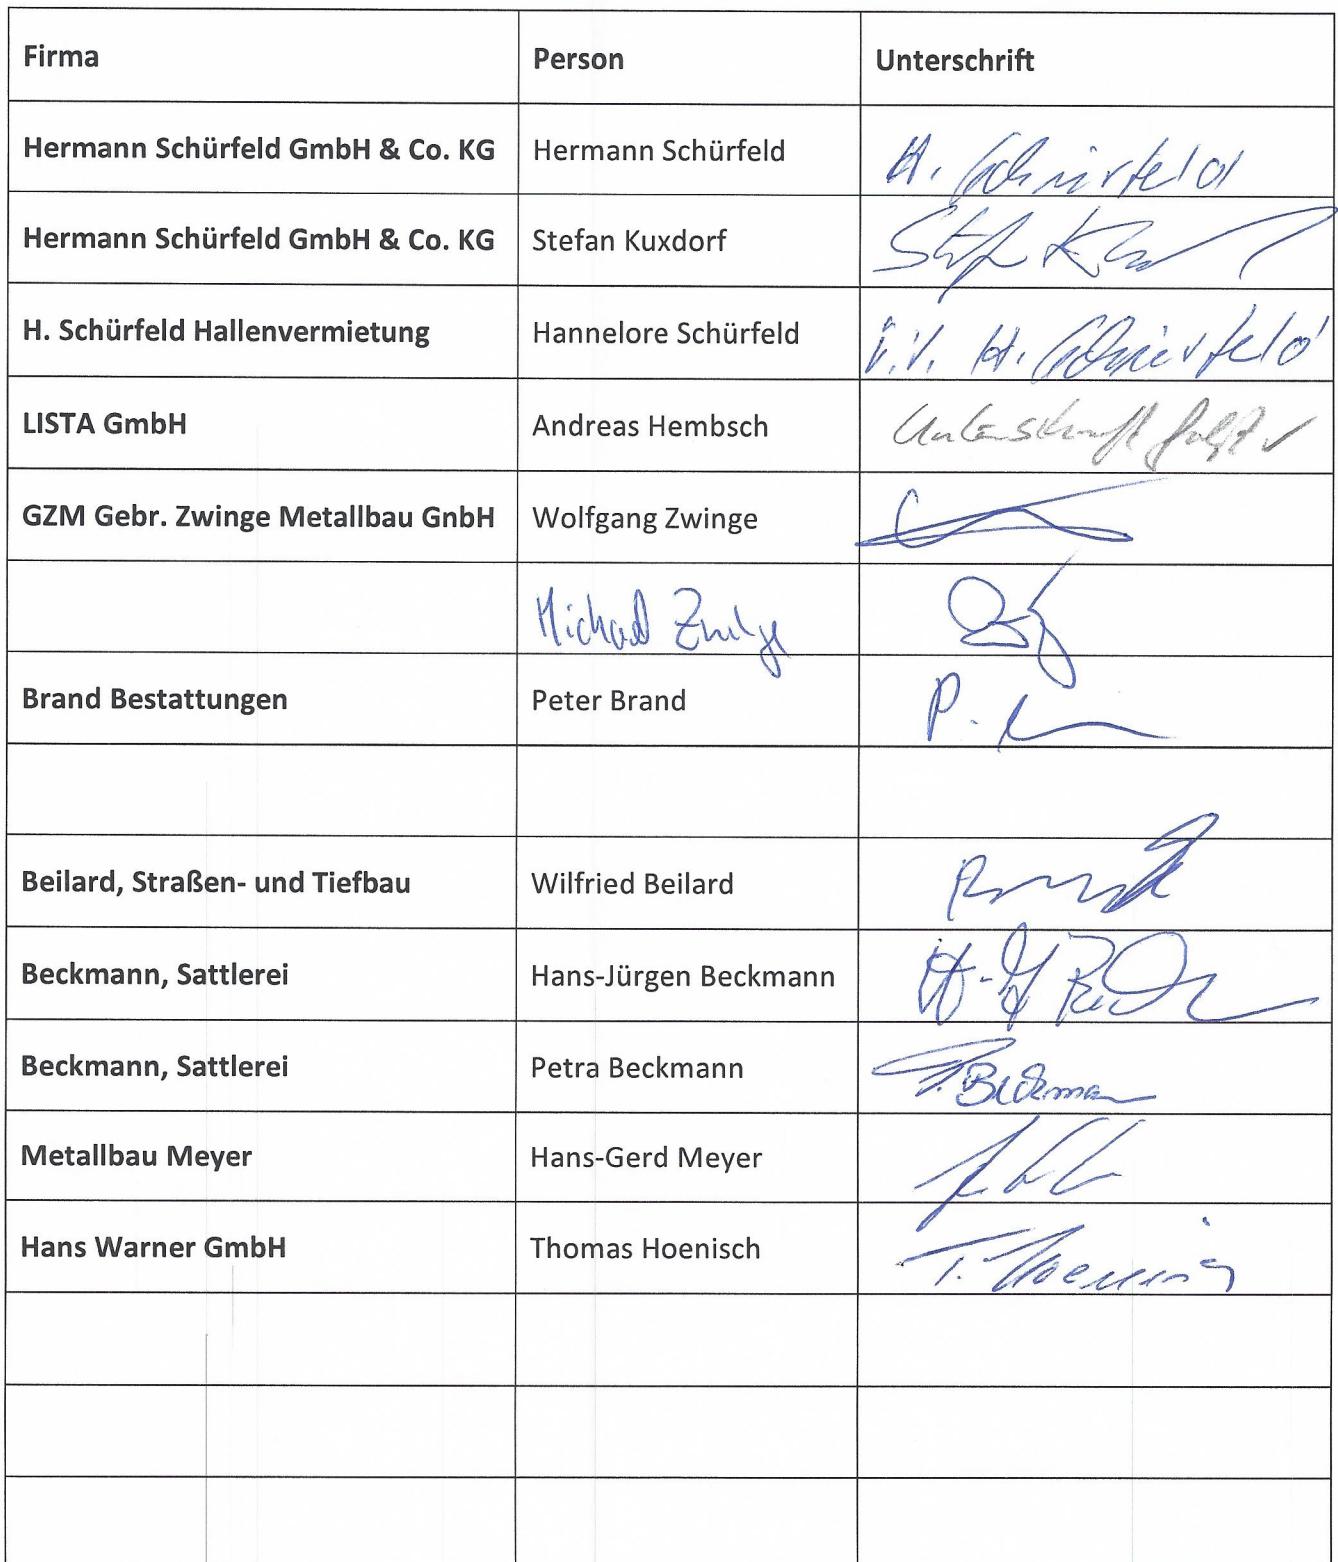 Firma Person Unterschrift
Hermann Schürfeld GmbH & Co. KG Hermann Schürfeld H. Schürfeld
Hermann Schürfeld GmbH & Co. KG Stefan Kuxdorf
H. Schürfeld Hallenvermietung Hannelore Schürfeld i.V. H. Schürfeld
LISTA GmbH Andreas Hembsch Unterschrift folgt ✓
GZM Gebr. Zwinge Metallbau GnbH Wolfgang Zwinge
Michael Zwinge
Brand Bestattungen Peter Brand P.
Beilard, Straßen- und Tiefbau Wilfried Beilard
Beckmann, Sattlerei Hans-Jürgen Beckmann
Beckmann, Sattlerei Petra Beckmann P. Beckmann
Metallbau Meyer Hans-Gerd Meyer
Hans Warner GmbH Thomas Hoenisch T. Hoenisch